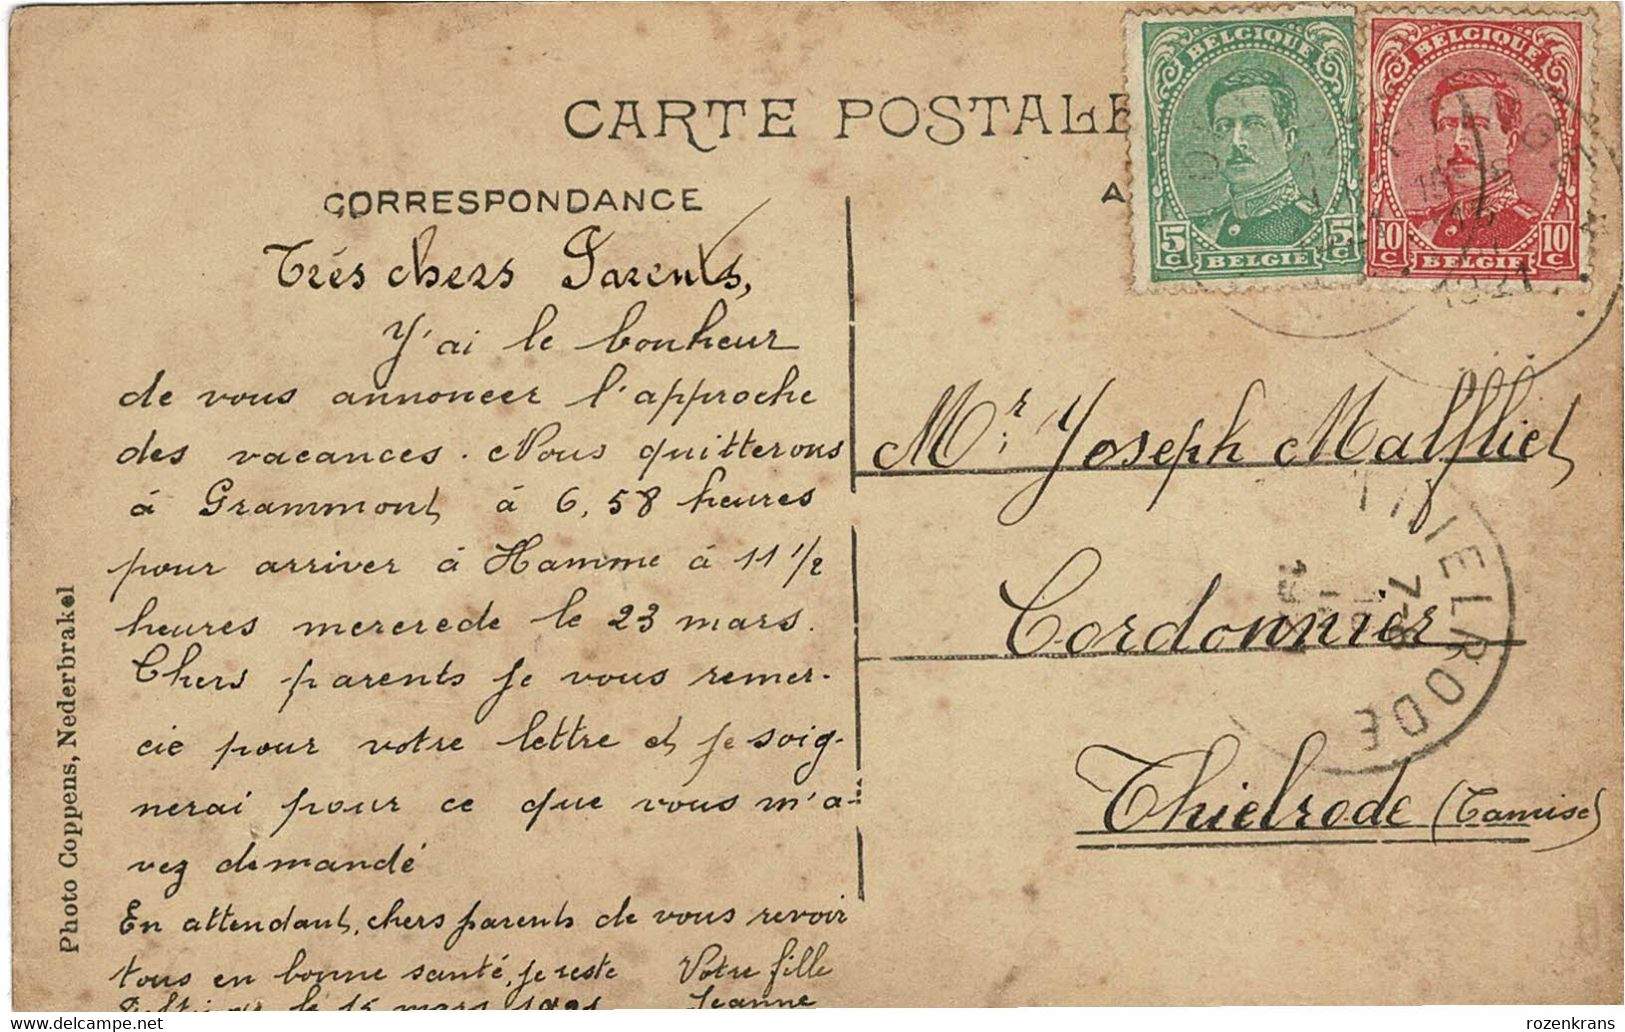 CARTE POSTALE
CORRESPONDANCE
Très chers Parents,
J'ai le bonheur
de vous annoncer l'approche
des vacances. Nous quitterons
à Grammont à 6,58 heures
pour arriver à Hamme à 11 1/2
heures mercrede le 23 mars.
Chers parents je vous remer-
cie pour votre lettre et je soig-
nerai pour ce que vous m'a-
vez demandé
En attendant, chers parents de vous revoir
tous en bonne santé, je reste Votre fille
le 15 mars 1921 Jeanne
Photo Coppens, Nederbrakel
A
BELGIQUE
5 C 5 C
BELGIE
BELGIQUE
10 C 10 C
BELGIE
1921
Mr. Joseph Malfliet
Cordonnier
Thielrode (Tamise)
THIELRODE
7-8
rozenkrans